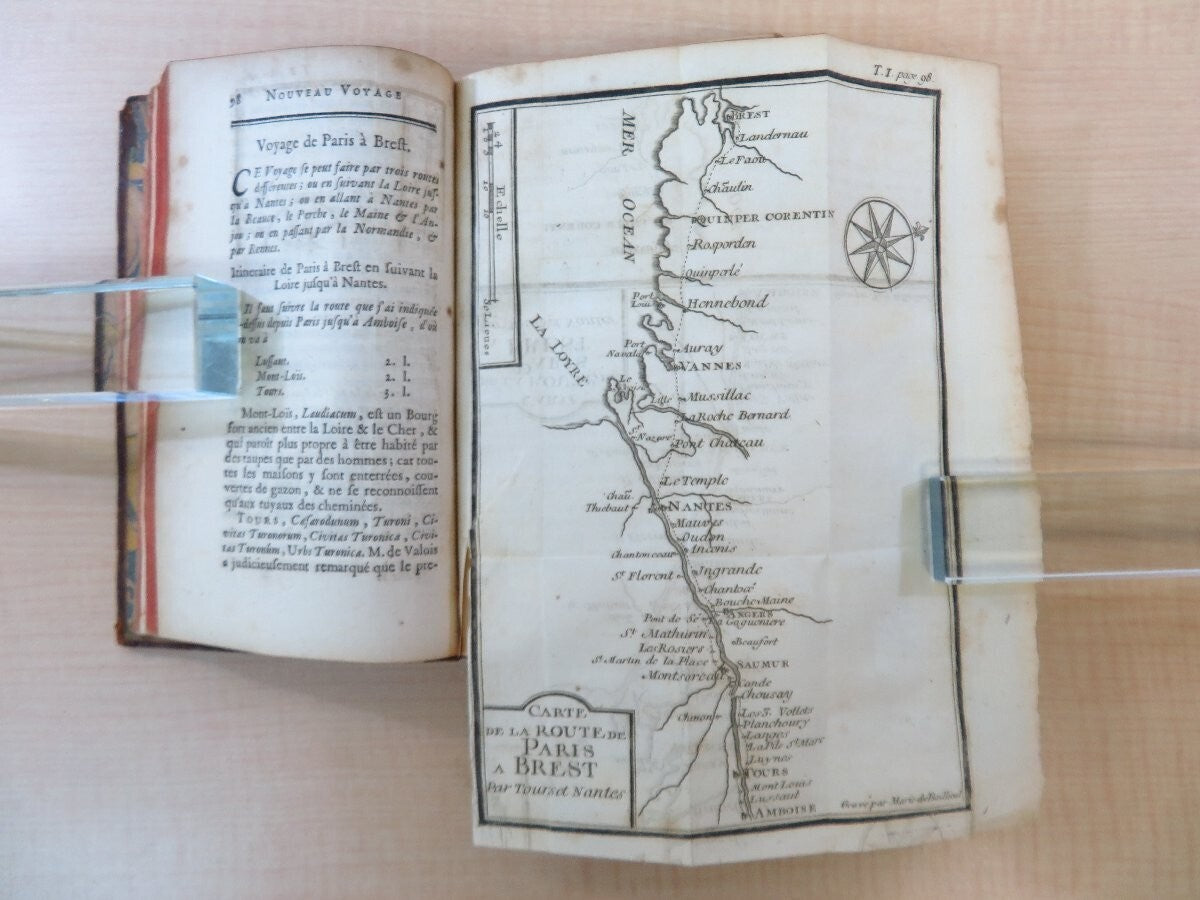 98 NOUVEAU VOYAGE
Voyage de Paris à Brest.
CE Voyage se peut faire par trois routes
differentes ; ou en suivant la Loire jus-
qu'à Nantes ; ou en allant à Nantes par
la Beauce, le Perche, le Maine & l'An-
jou ; ou en passant par la Normandie, &
par Rennes.
Itineraire de Paris à Brest en suivant la
Loire jusqu'à Nantes.
Il faut suivre la route que j'ai indiquée
-dessus depuis Paris jusqu'à Amboise, d'où
on va à
Lussant. 2. l.
Mont-Loïs. 2. l.
Tours. 3. l.
Mont-Loïs, Laudiacum, est un Bourg
fort ancien entre la Loire & le Cher, &
qui paroît plus propre à être habité par
des taupes que par des hommes ; car tou-
tes les maisons y sont enterrées, cou-
vertes de gazon, & ne se reconnoissent
qu'aux tuyaux des cheminées.
TOURS, Cæsarodunum, Turoni, Ci-
vitas Turonorum, Civitas Turonica, Civi-
tas Turonûm, Urbs Turonica. M. de Valois
a judicieusement remarqué que le pre-
T.I. page 98.
MER OCEAN
Echelle
LA LOYRE
BREST
Landernau
Le Faou
Chaulin
QUINPER CORENTIN
Rosporden
Quinperlé
Port Louis
Hennebond
Auray
Port Navalo
VANNES
Le Croisic
Mussillac
LaRoche Bernard
St Nazere
Pont Chateau
Le Temple
Chau Thiebaut
NANTES
Mauves
Oudon
Ancenis
Chantonceau
Ingrande
St Florent
Chantocé
Bouche Maine
ANGERS
Pont de Sé
La Goguenière
St Mathurin
Beaufort
Les Rosiers
St Martin de la Place
SAUMUR
Montsoreau
Cande
Chousay
Chinon
Les 3. Vollets
Planchoury
Langes
La Pile St Marc
Luynes
TOURS
Mont Louis
Lussaut
AMBOISE
CARTE
DE LA ROUTE DE
PARIS
A BREST
Par Tours et Nantes